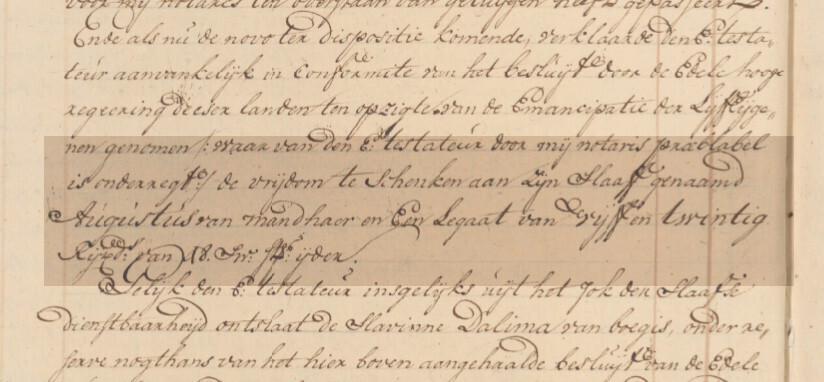 voor mij notaris ten overstaan van getuijgen heeft gepasseert.
Ende als nu de novo ter dispositie komende, verklaarde den E: testa-
teur aanvankelijk in Conformite van het besluijt door de Edele hooge
regeering deeser landen ten opzigte van de Emancipatie der Lijfeijge-
nen genomen /: waar van den E: testateur door mij notaris præalabel
is onderregt :/ de vrijdom te schenken aan zijn Slaaff genaamd
Augustus van mandhaer en Een Legaat van vijff en twintig
Rijxds. van 48. Srs. ijder.
Gelijk den E: testateur insgelijks uijt het Jok der Slaafse
dienstbaarheijd ontslaat de Slavinne Dalima van boegis, onder re-
serve nogthans van het hier boven aangehaalde besluijt van de Edele